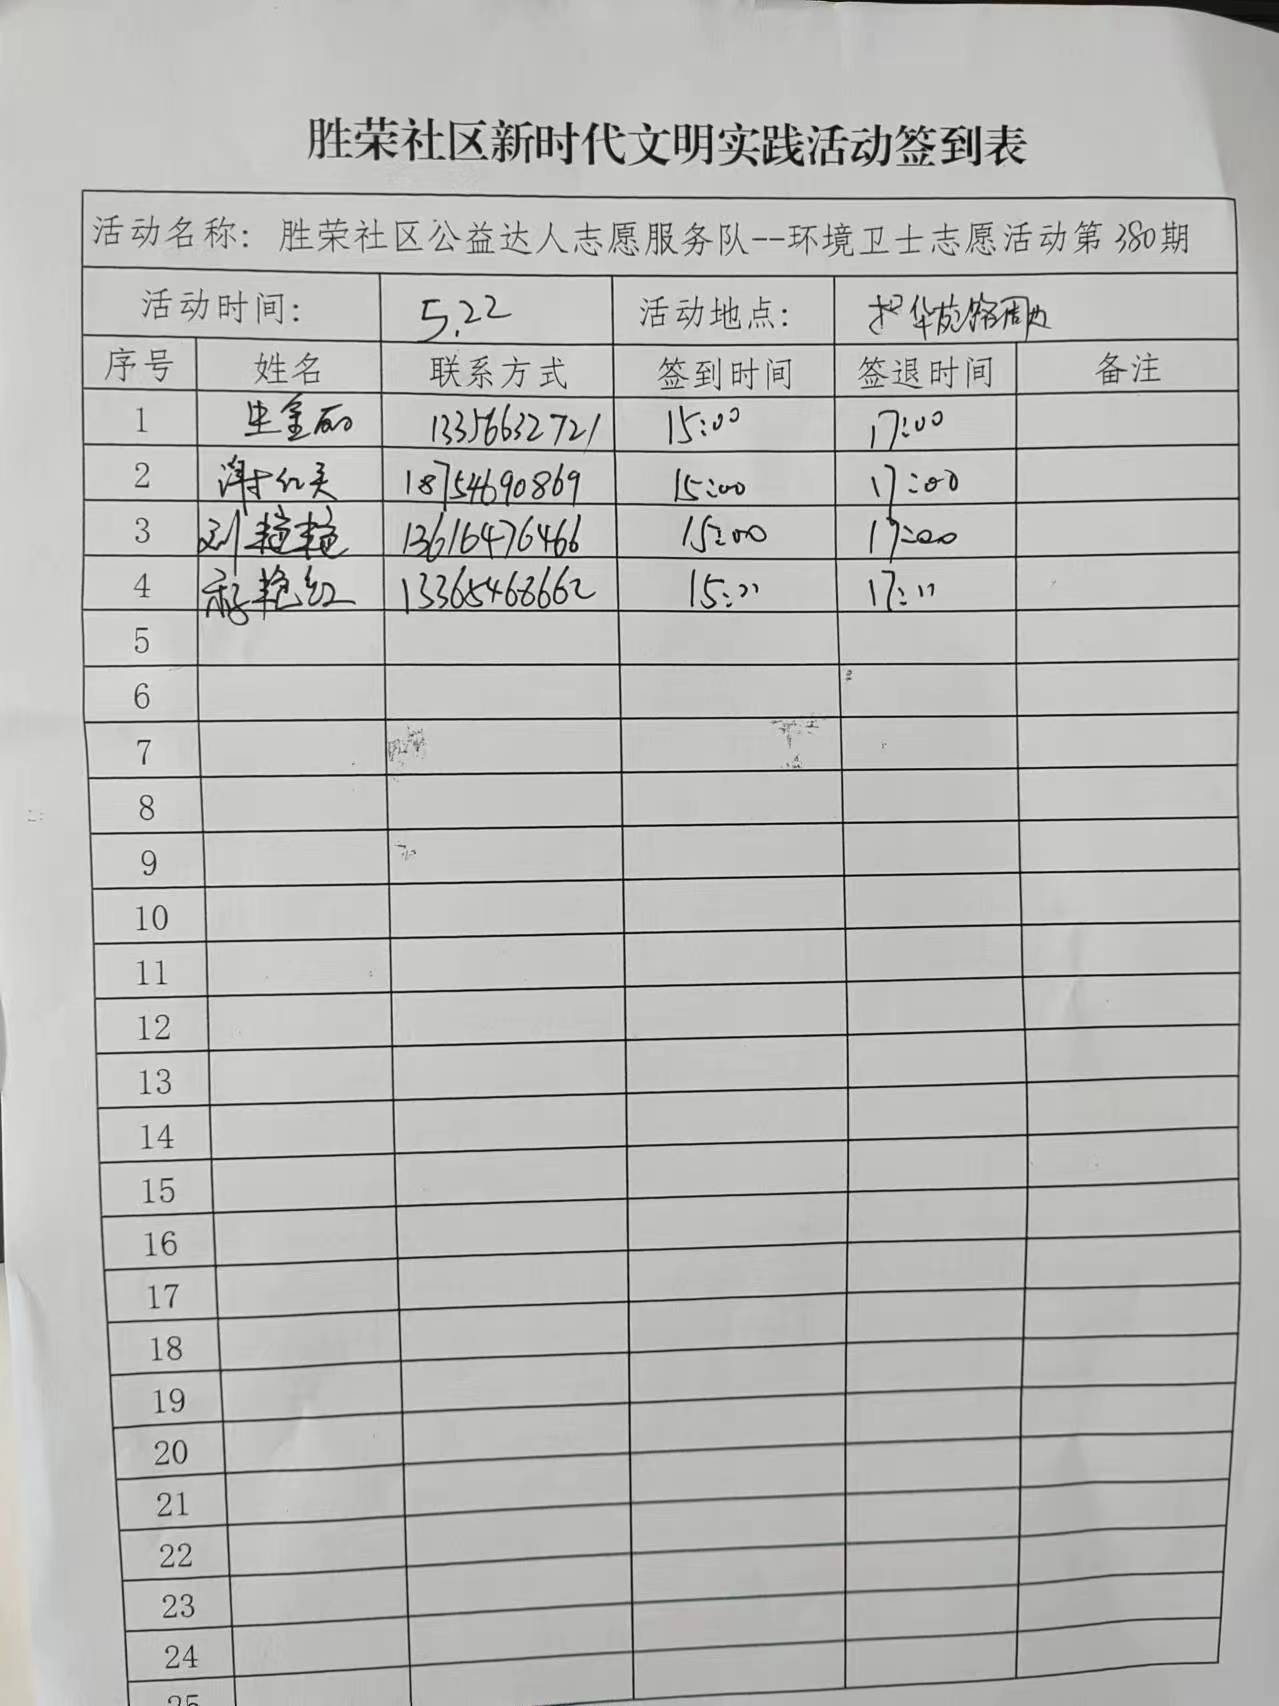 胜荣社区新时代文明实践活动签到表
活动名称：胜荣社区公益达人志愿服务队--环境卫士志愿活动第380期
活动时间： 5.22 活动地点： 华苑路周边
序号 姓名 联系方式 签到时间 签退时间 备注
1 生金丽 13356632721 15:00 17:00
2 谢红英 18754690869 15:00 17:00
3 刘艳艳 13616476466 15:00 17:00
4 艳红 13365468662 15:11 17:11
5
6
7
8
9
10
11
12
13
14
15
16
17
18
19
20
21
22
23
24
25